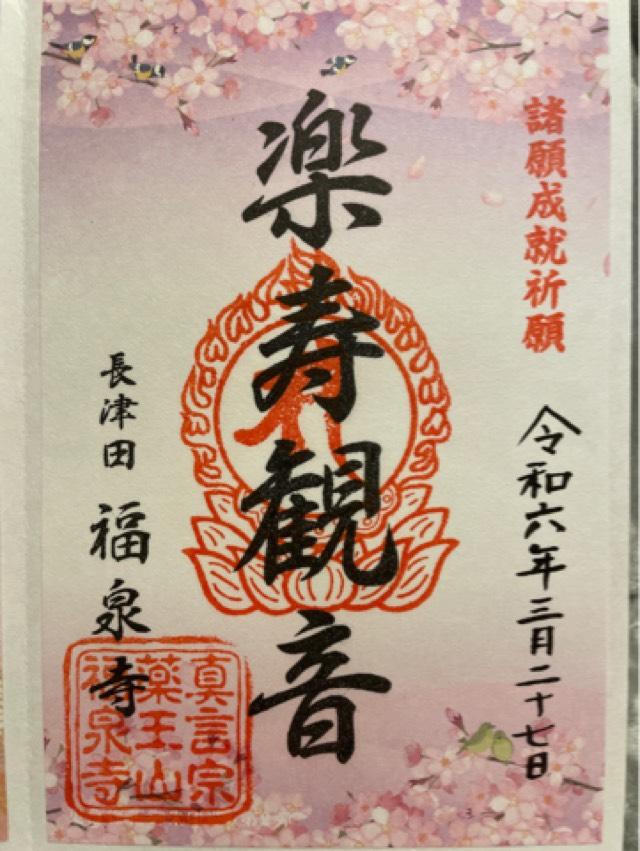 諸願成就祈願
令和六年三月二十七日
楽寿観音
長津田 福泉寺
真言宗
薬王山
福泉寺